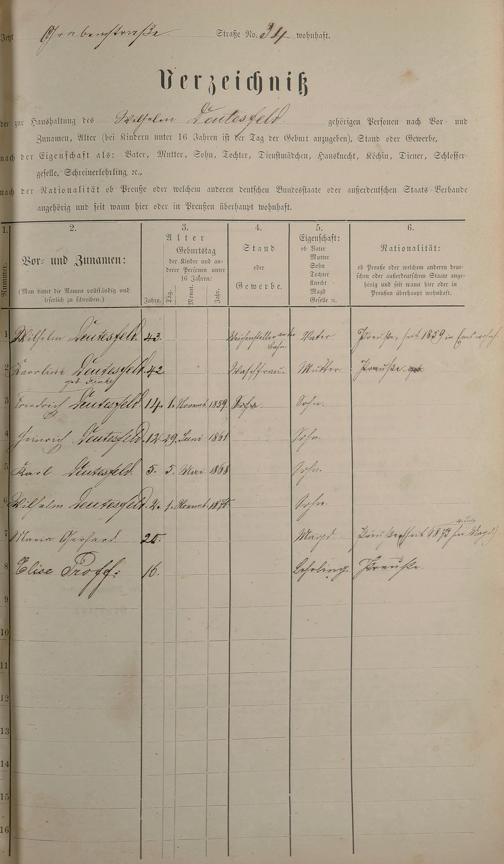 Jetzt Grabenstraße Straße No. 34 wohnhaft.
Verzeichniß
der zur Haushaltung des Wilhelm Deutesfeld gehörigen Personen nach Vor- und
Zunamen, Alter (bei Kindern unter 16 Jahren ist der Tag der Geburt anzugeben), Stand oder Gewerbe,
nach der Eigenschaft als: Vater, Mutter, Sohn, Tochter, Dienstmädchen, Hausknecht, Köchin, Diener, Schlosser-
geselle, Schreinerlehrling ꝛc.,
nach der Nationalität ob Preuße oder welchem anderen deutschen Bundesstaate oder außerdeutschen Staats-Verbande
angehörig und seit wann hier oder in Preußen überhaupt wohnhaft.
1. 2. 3. 4. 5. 6.
Nummer.
Vor- und Zunamen:
(Man bittet die Namen vollständig und
leserlich zu schreiben.)
Alter
Geburtstag
der Kinder und an-
derer Personen unter
16 Jahren:
Jahre. Tag. Monat. Jahr.
Stand
oder
Gewerbe.
Eigenschaft:
ob Vater
Mutter
Sohn
Tochter
Knecht
Magd
Geselle ꝛc.
Nationalität:
ob Preuße oder welchem anderen deut-
schen oder außerdeutschen Staate ange-
hörig und seit wann hier oder in
Preußen überhaupt wohnhaft.
1 Wilhelm Deutesfeld 43. Weichensteller Bahn Vater Preuße, seit 1859 in
2 Karoline Deutesfeld 42 Mutter Preuße
geb.
3 Friedrich Deutesfeld 14. 1. Novemb. 1859 Sohn Sohn.
4 Heinrich Deutesfeld 12. 29. Juni 1861 Sohn.
5 Karl Deutesfeld 5. 5. Mai 1868 Sohn.
6 Wilhelm Deutesfeld 2. 1. Novemb. Sohn.
7 Maria Gerhard. Magd Preuße seit
8 Elise Proff. 16. Lehrling. Preuße.
9
10
11
12
13
14
15
16